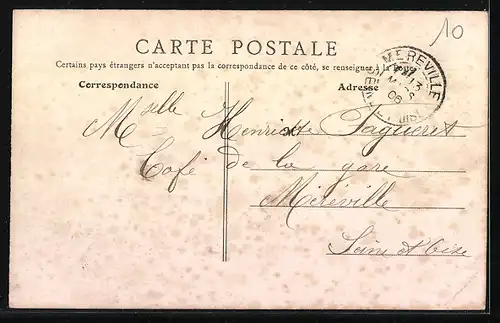 10
CARTE POSTALE
Certains pays étrangers n'acceptant pas la correspondance de ce côté, se renseigner à la Poste
Correspondance
Adresse
MEREVILLE
13
06
Mselle Henriette Fagueret
Café de la gare
Méréville
Seine et Oise